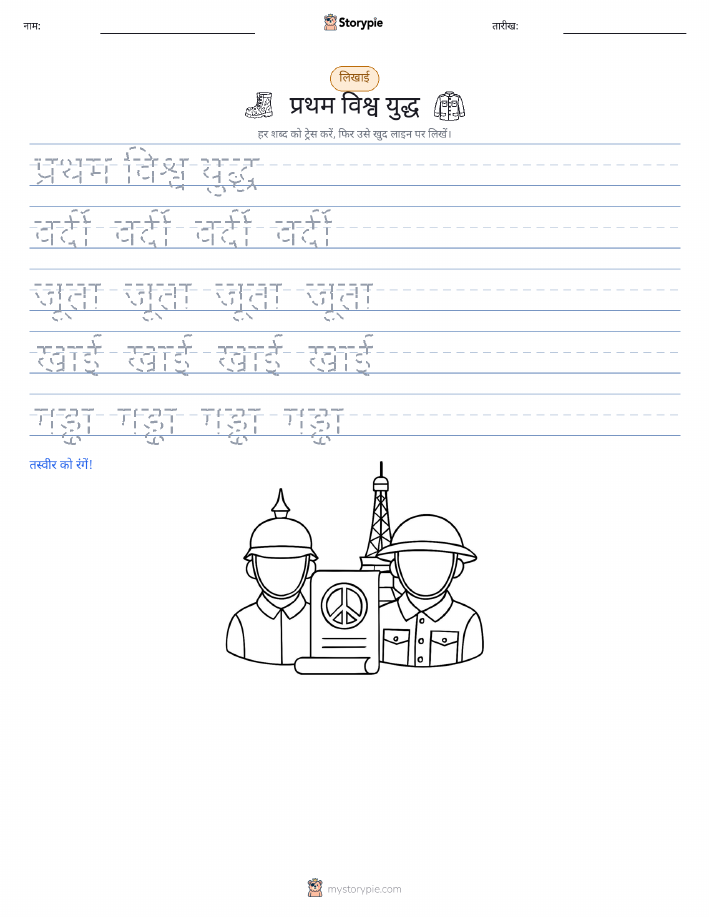 नाम:
Storypie
तारीख:
लिखाई
प्रथम विश्व युद्ध
हर शब्द को ट्रेस करें, फिर उसे खुद लाइन पर लिखें।
प्रथम विश्व युद्ध
वर्दी वर्दी वर्दी वर्दी
जूता जूता जूता जूता
खाई खाई खाई खाई
गड्ढा गड्ढा गड्ढा गड्ढा
तस्वीर को रंगें!
mystorypie.com